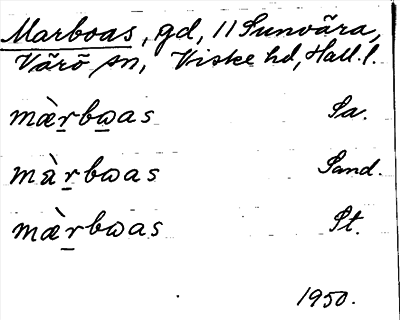 Marboas, gd, 11 Sunvära,
Värö sn, Viske hd, Hall. l.
mæ̀r̲bω̲as Sa.
màr̲bωas Sand.
mæ̀r̲bωas St.
1950.